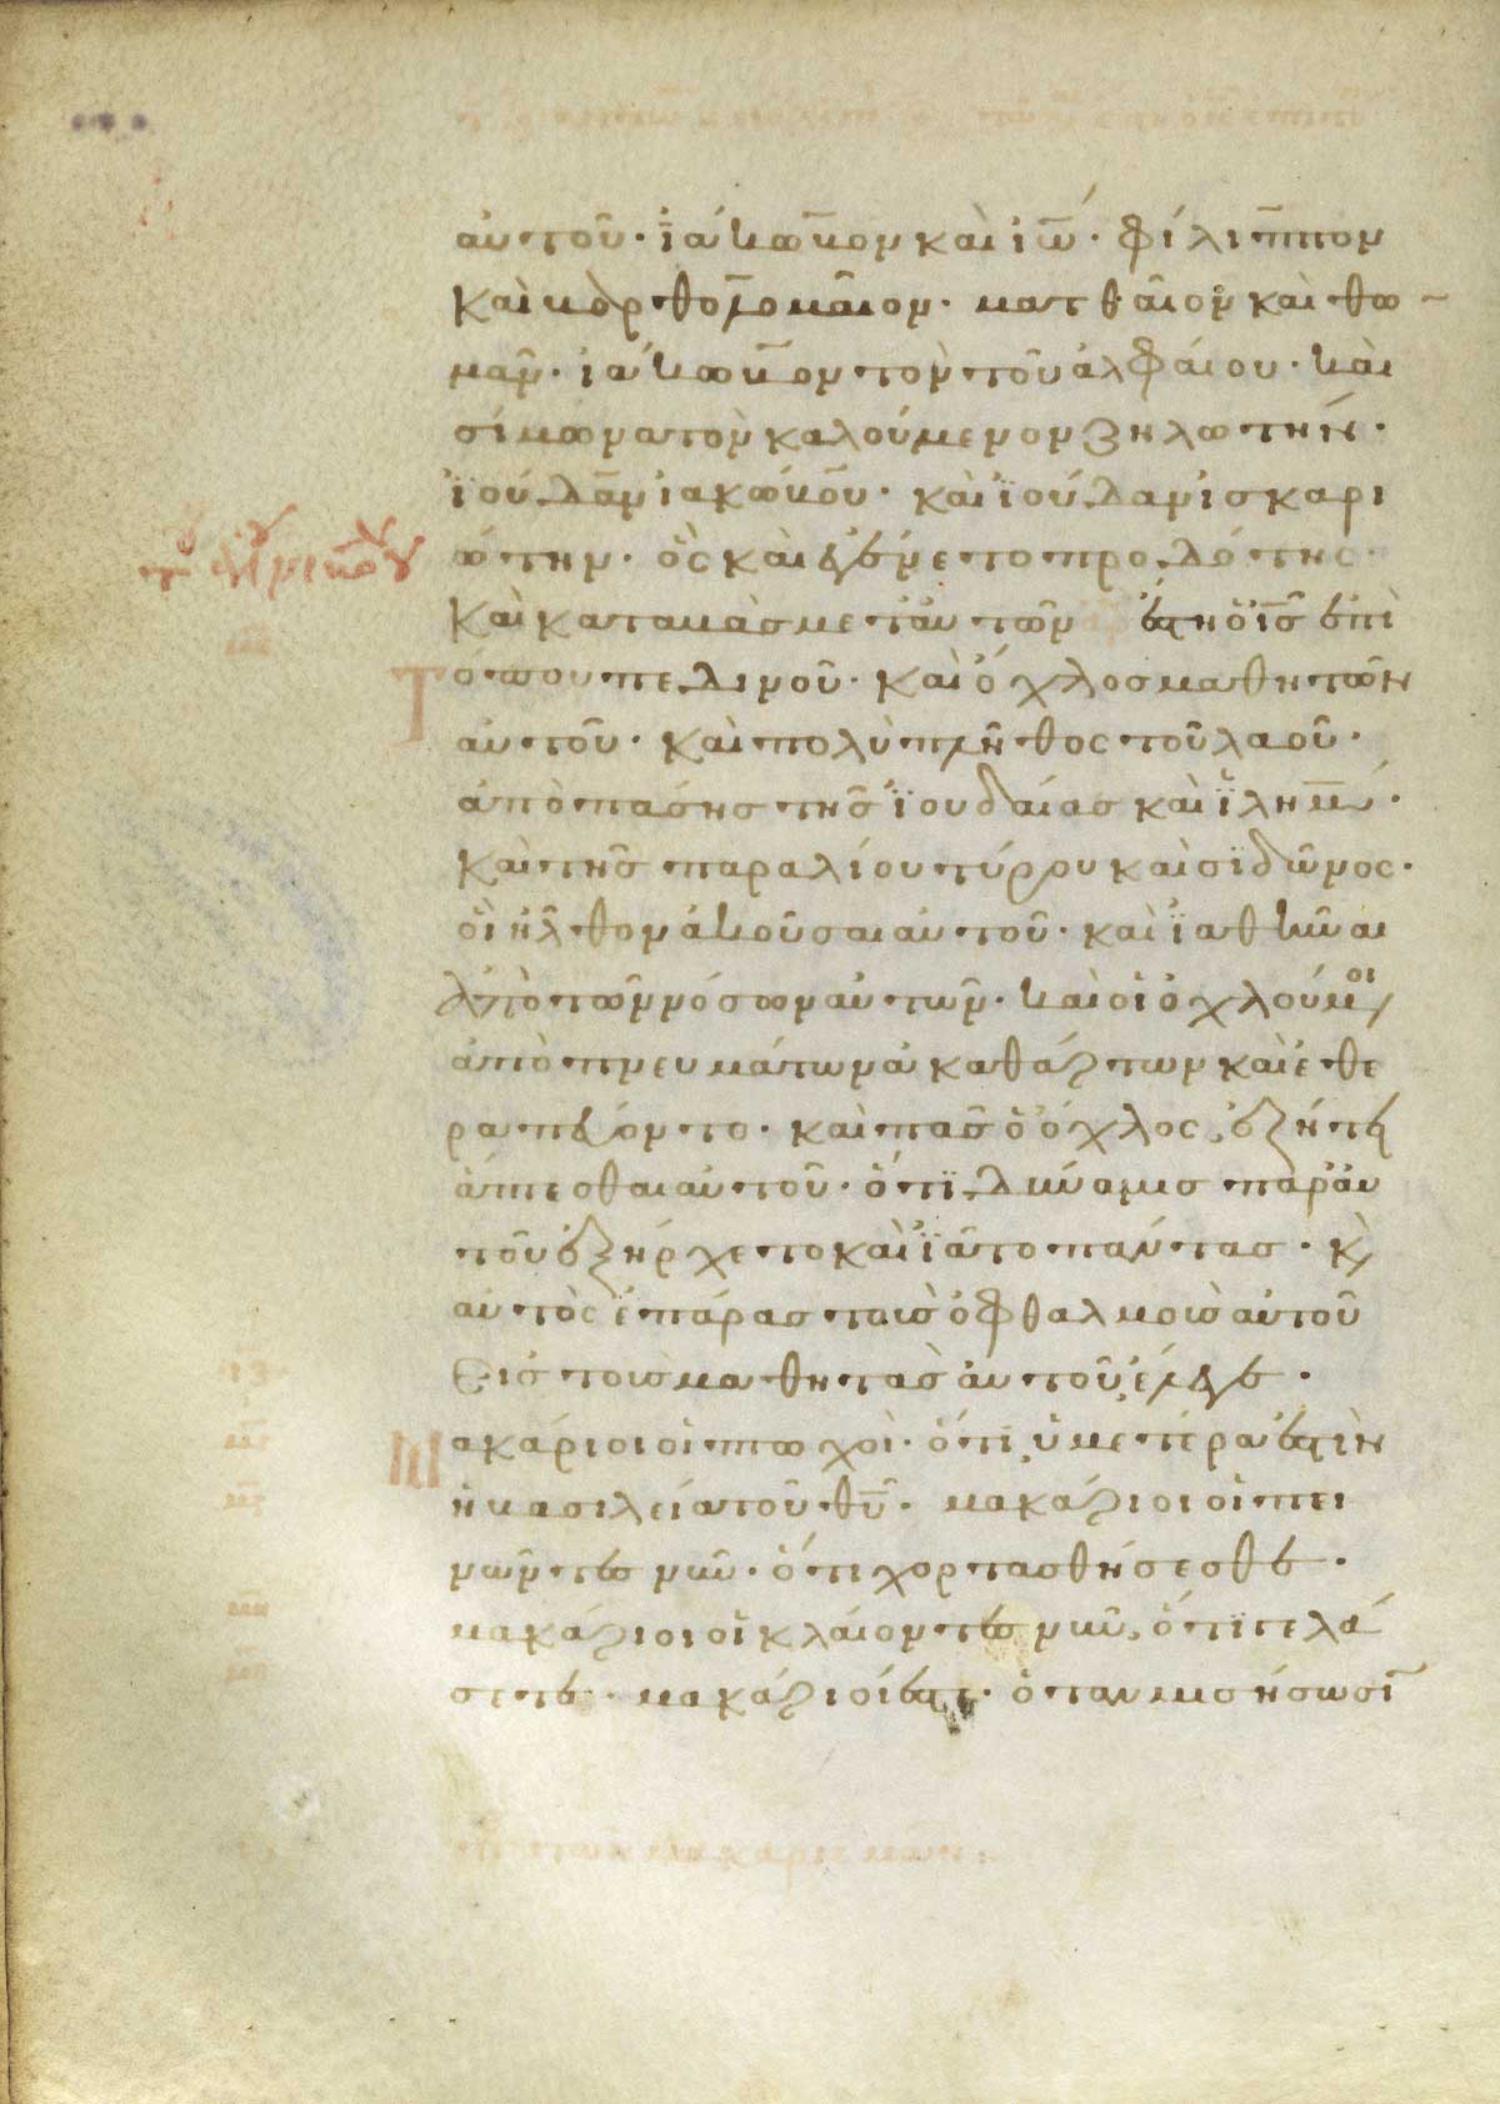 αὐτοῦ· ἰάκωβον καὶ ἰω̅· φίλιππον
καὶ βὰρθολομαῖον· ματθαῖον καὶ θω
μᾶν· ἰάκωβον τὸν τοῦ ἀλφαίου· καὶ
σίμωνα τὸν καλούμενον ζηλωτήν·
ϊούδαν ἰακώβου· καὶ ϊούδαν ἰσκαρι
ώτην· ὃς καὶ ἐγένετο προδότης·
καὶ καταβὰσ μετ' αὐτῶν ἔστη ὁ ις̅ ἐπὶ
τόπου πεδινοῦ· καὶ ὄχλοσ μαθητῶν
αὐτοῦ· καὶ πολὺ πλῆθος τοῦ λαοῦ·
ἀπὸ πάσησ τῆσ ϊουδαίασ καὶ ϊλημ̅·
καὶ τῆσ παραλίου τύρου καὶ σϊδῶνος·
οἳ ἦλθον ἀκοῦσαι αὐτοῦ· καὶ ϊαθῆναι
ἀπὸ τῶν νόσων αὐτῶν· καὶ οἱ ὀχλούμοι
ἀπὸ πνευμάτων ἀκαθάρτων καὶ ἐθε
ραπεύοντο· καὶ πᾶσ ὁ ὄχλος ἐζήτει
ἅπτεσθαι αὐτοῦ· ὅτϊ δύναμισ παρ' αὐ
τοῦ ἐξήρχετο καὶ ϊᾶτο πάντασ· κ̀
αὐτὸς ἐπάρασ τοὺσ ὀφθαλμοὺσ αὐτοῦ
εἰσ τοὺσ μαθητὰσ αὐτοῦ, ἔλεγε·
Μακάριοι οἱ πτωχοὶ· ὅτι ὑμετέρα ἐστὶν
ἡ βασιλεία τοῦ θυ̅· μακάριοι οἱ πει
νῶντεσ νῦν· ὅτι χορτασθήσεσθε·
μακάριοι οἱ κλαίοντεσ νῦν, ὅτϊ γελά
σετε· μακάριοί ἐστε· ὅταν μισήσωσῐ